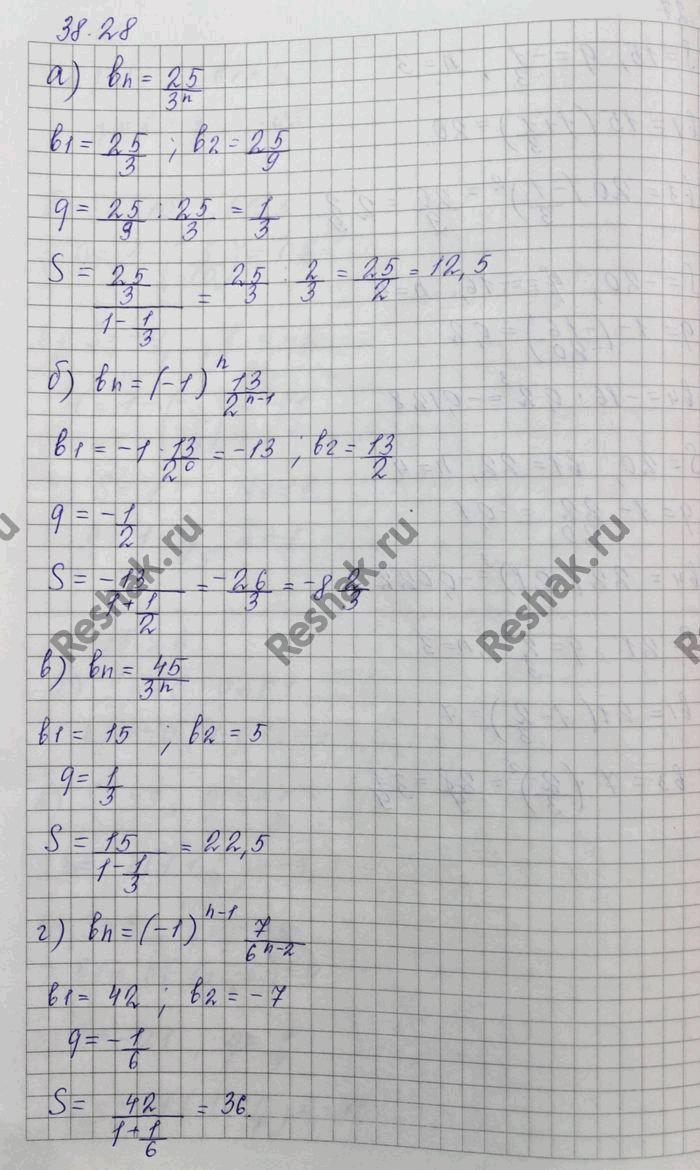 38.28
а) bn = 25/3^n
b1 = 25/3 ; b2 = 25/9
q = 25/9 : 25/3 = 1/3
S = (25/3)/(1 - 1/3) = 25/3 : 2/3 = 25/2 = 12,5
б) bn = (-1)^n 13/2^(n-1)
b1 = -1 · 13/2^0 = -13 ; b2 = 13/2
q = -1/2
S = -13/(1 + 1/2) = -26/3 = -8 2/3
в) bn = 45/3^n
b1 = 15 ; b2 = 5
q = 1/3
S = 15/(1 - 1/3) = 22,5
г) bn = (-1)^(n-1) 7/6^(n-2)
b1 = 42 ; b2 = -7
q = -1/6
S = 42/(1 + 1/6) = 36.
Reshak.ru
Reshak.ru
Reshak.ru